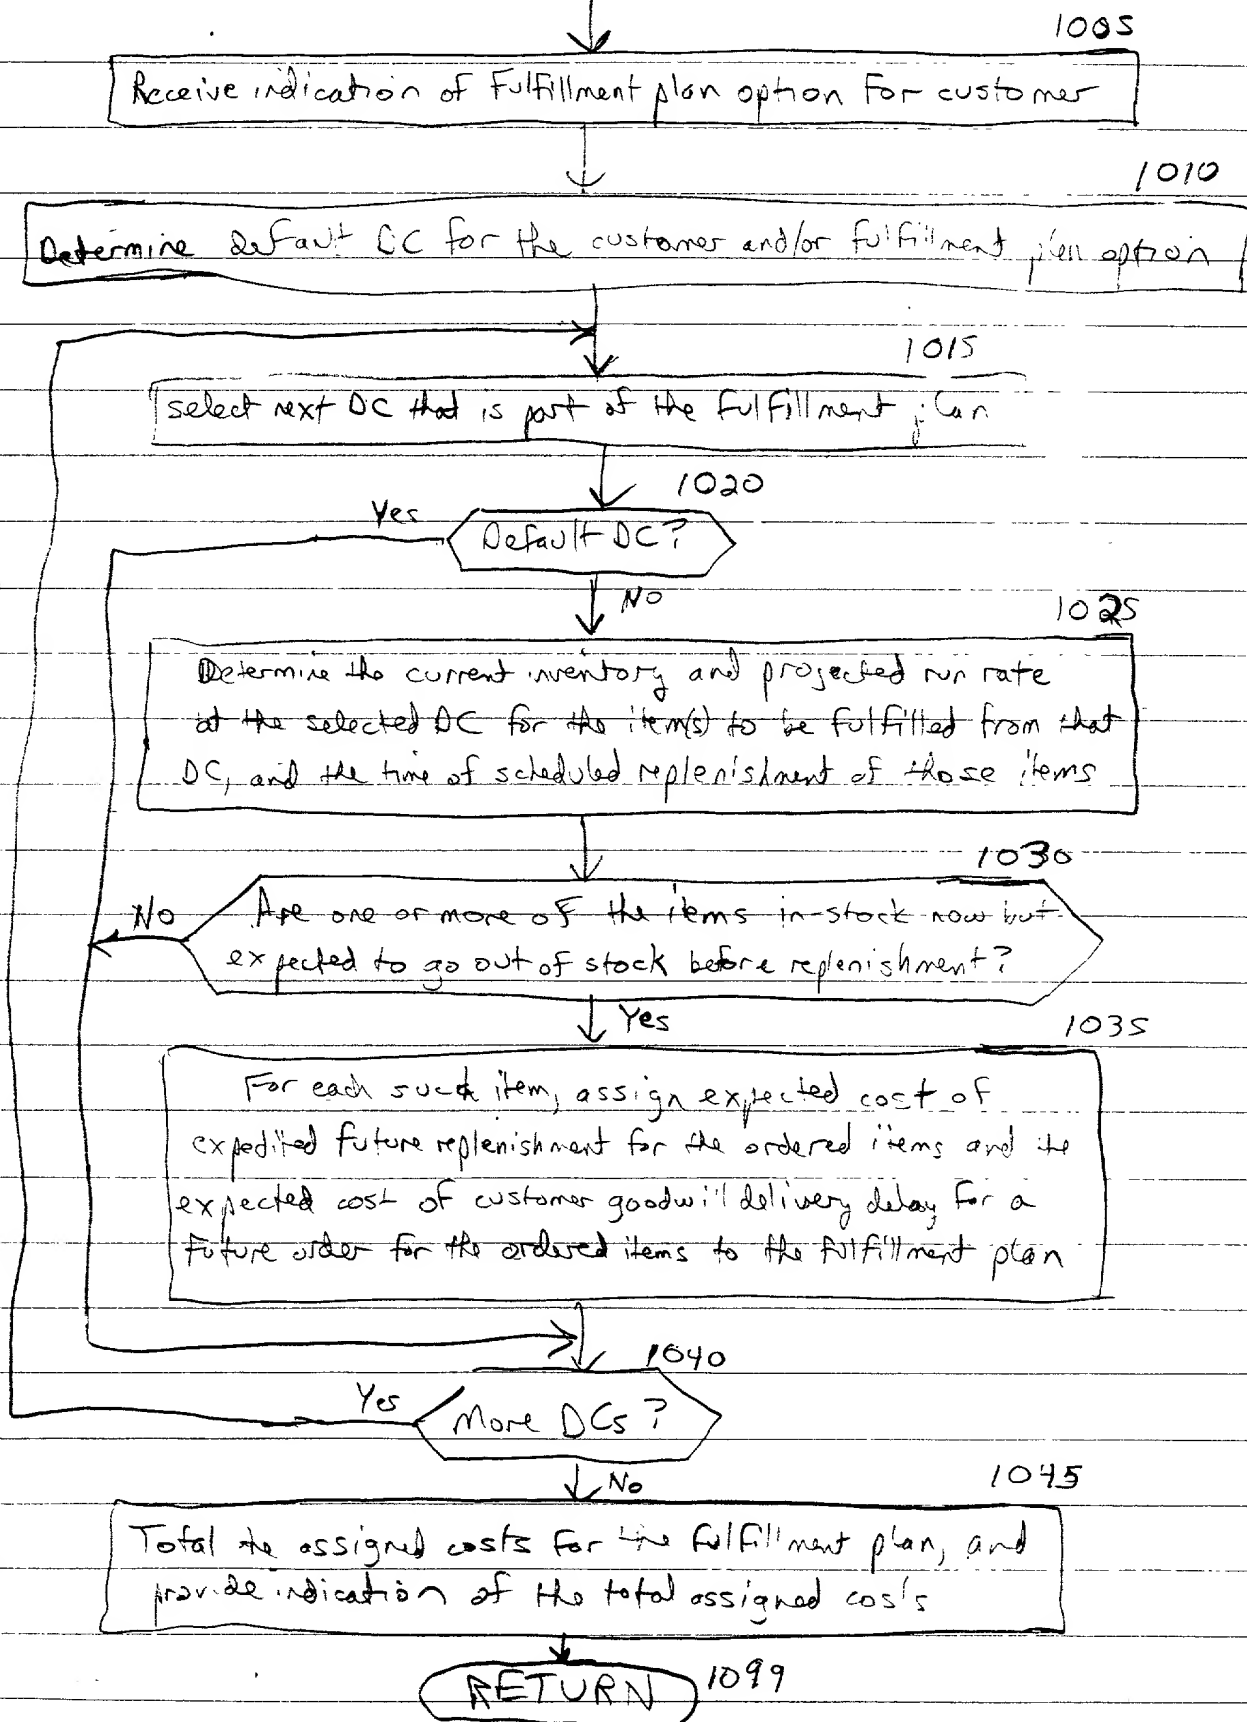 1005
Receive indication of Fulfillment plan option for customer
1010
Determine default DC for the customer and/or fulfillment plan option
1015
select next DC that is part of the fulfillment plan
1020
Yes
Default DC?
No
1025
Determine the current inventory and projected run rate
at the selected DC for the item(s) to be fulfilled from that
DC, and the time of scheduled replenishment of those items
1030
No
Are one or more of the items in-stock now but
expected to go out of stock before replenishment?
Yes
1035
For each such item, assign expected cost of
expedited future replenishment for the ordered items and the
expected cost of customer goodwill delivery delay for a
future order for the ordered items to the fulfillment plan
1040
Yes
More DCs?
No
1045
Total the assigned costs for the fulfillment plan, and
provide indication of the total assigned costs
RETURN
1099